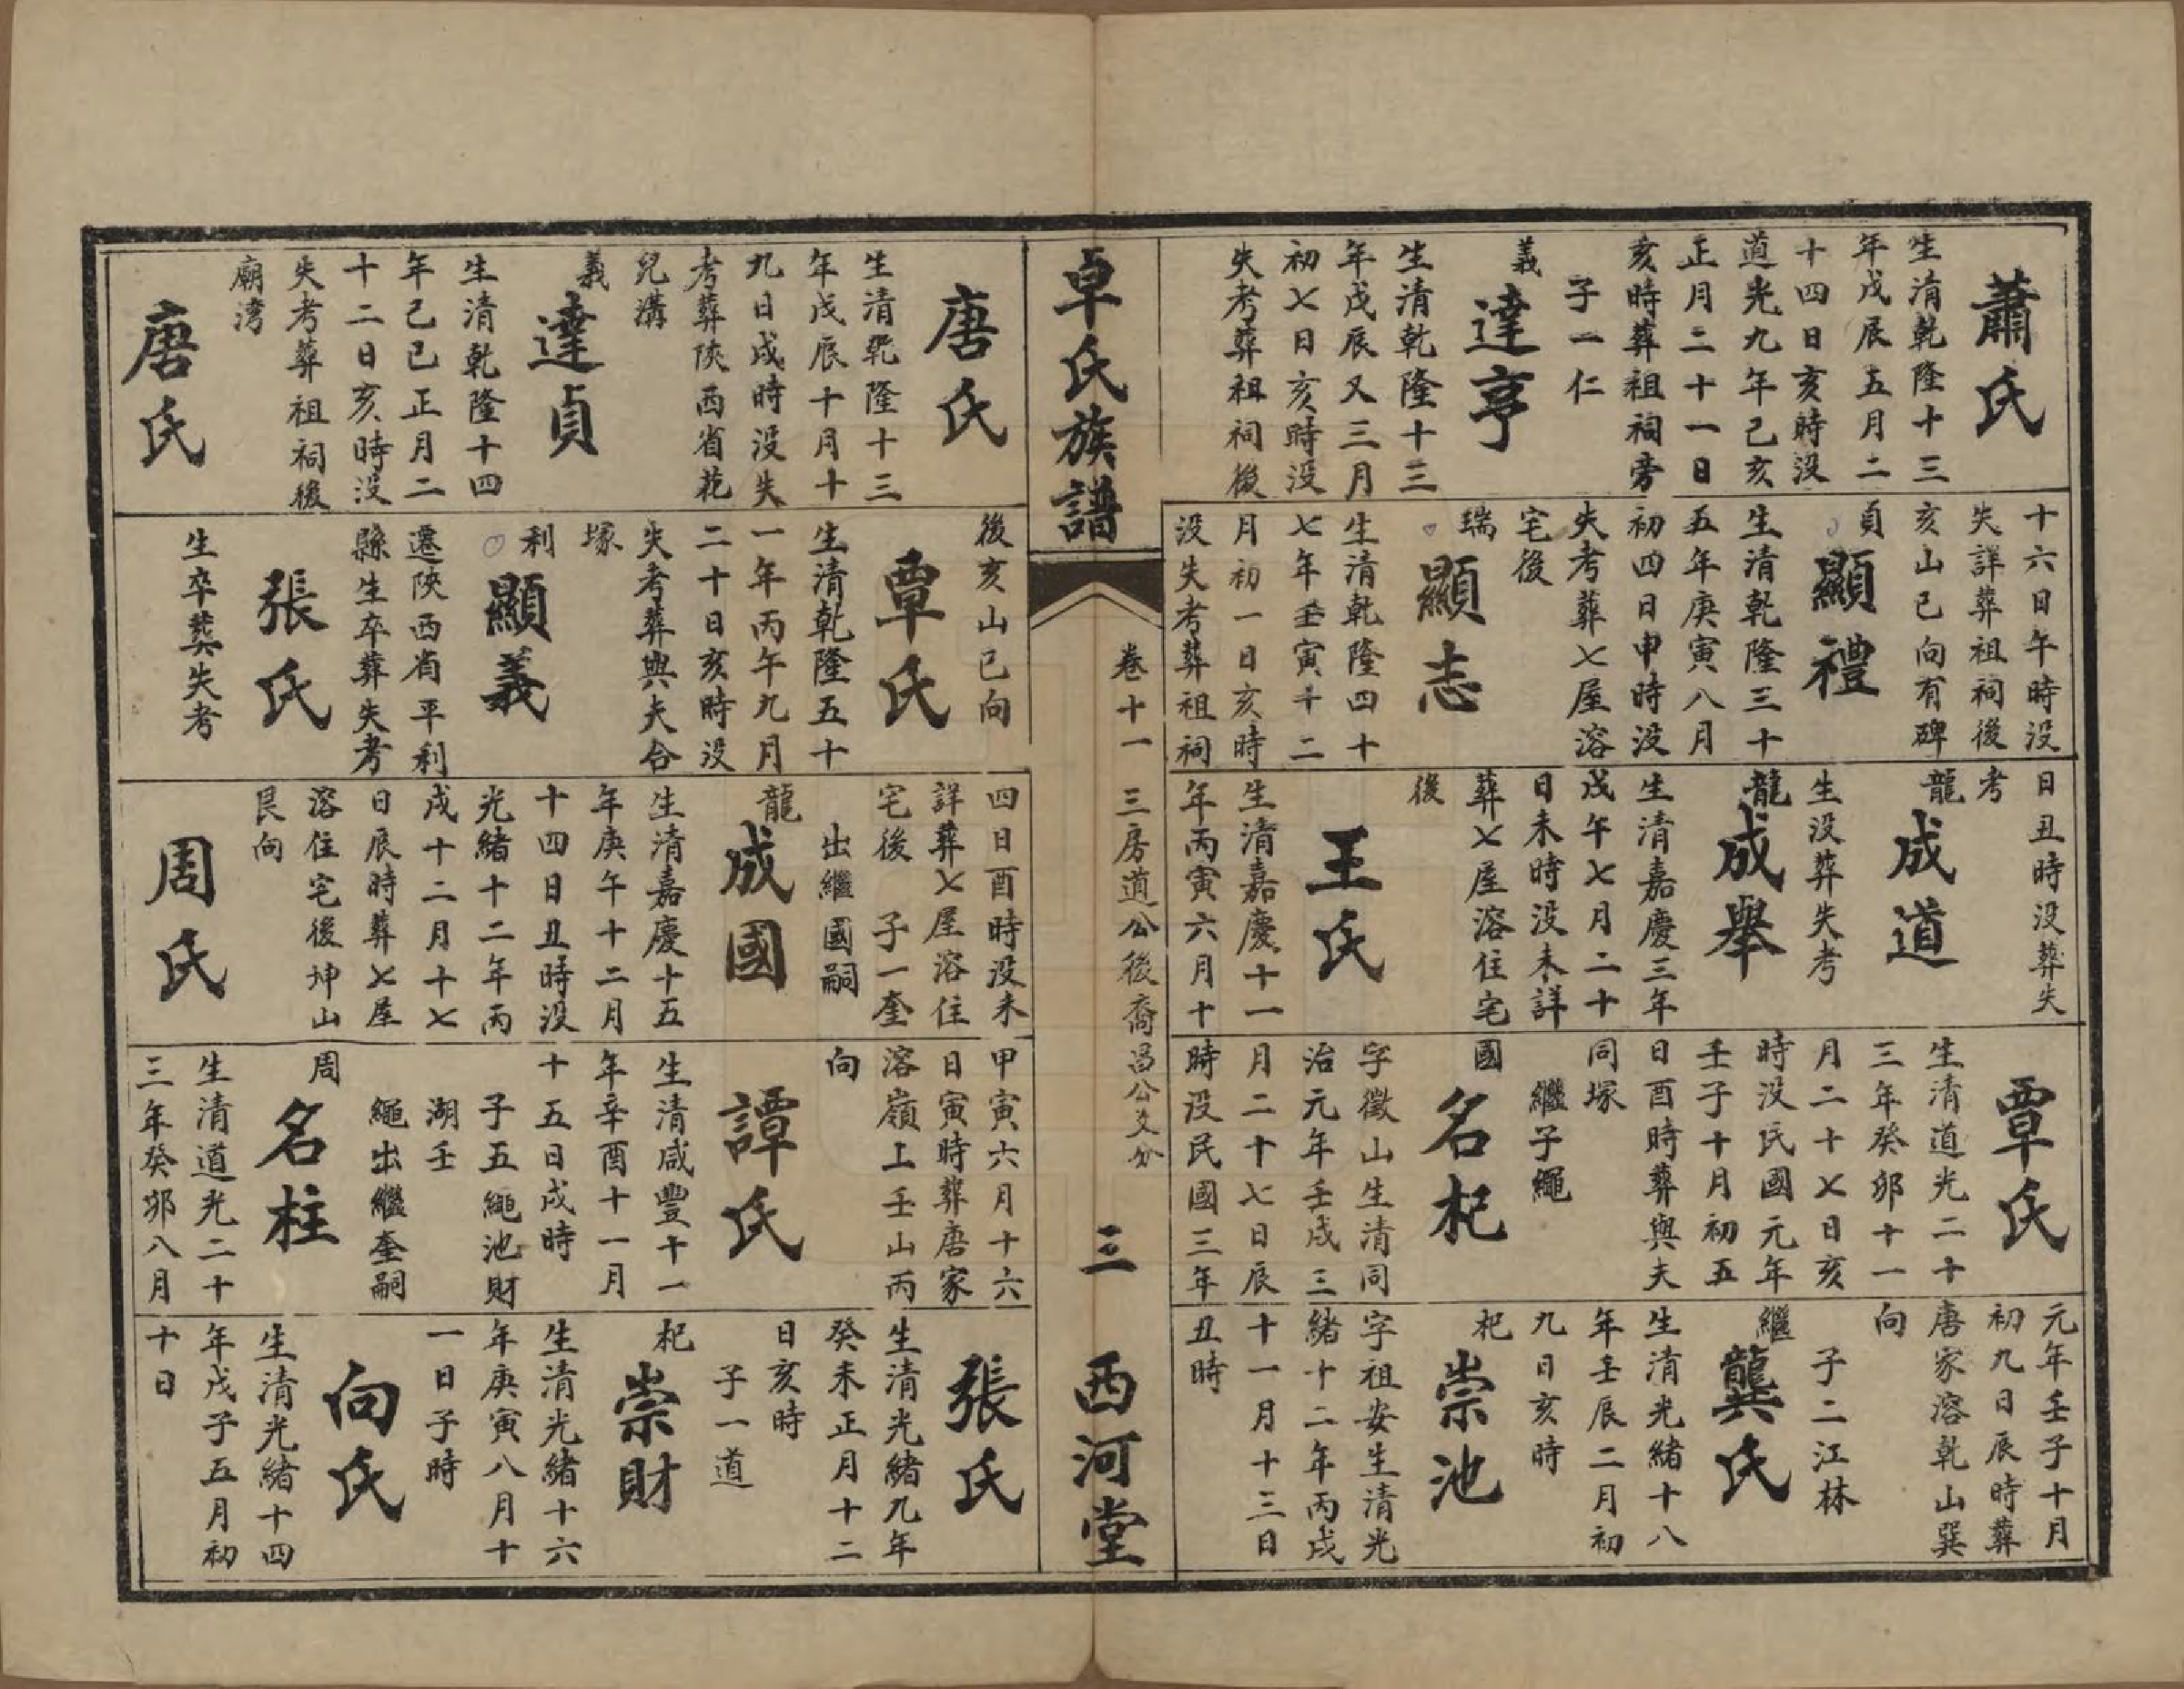 蕭氏
生清乾隆十三
年戊辰五月二
十四日亥時沒
道光九年己亥
正月二十一日
亥時葬祖祠旁
子一仁
義
達亨
生清乾隆十三
年戊辰又三月
初七日亥時沒
失考葬祖祠後
十六日午時沒
失詳葬祖祠後
亥山巳向有碑
貞
顯禮
生清乾隆三十
五年庚寅八月
初四日申時沒
失考葬七屋溶
宅後
瑞
顯志
生清乾隆四十
七年壬寅十二
月初一日亥時
沒失考葬祖祠
日丑時沒葬失
考
龍
成道
生沒葬失考
龍
成舉
生清嘉慶三年
戊午七月二十
日未時沒未詳
葬七屋溶住宅
後
王氏
生清嘉慶十一
年丙寅六月十
覃氏
生清道光二十
三年癸卯十一
月二十七日亥
時沒民國元年
壬子十月初五
日酉時葬與夫
同塚
繼子繩
國
名杞
字徵山生清同
治元年壬戌三
月二十七日辰
時沒民國三年
元年壬子十月
初九日辰時葬
唐家溶乾山巽
向
子二江林
繼
龔氏
生清光緒十八
年壬辰二月初
九日亥時
杞
崇池
字祖安生清光
緒十二年丙戌
十一月十三日
丑時
卓氏族譜
卷十一
三房道公後裔昌公支分
三
西河堂
唐氏
生清乾隆十三
年戊辰十月十
九日戌時沒失
考葬陝西省花
兒溝
義
達貞
生清乾隆十四
年己巳正月二
十二日亥時沒
失考葬祖祠後
廟灣
唐氏
後亥山巳向
覃氏
生清乾隆五十
一年丙午九月
二十日亥時沒
失考葬與夫合
塚
利
顯義
遷陝西省平利
縣生卒葬失考
張氏
生卒葬失考
四日酉時沒未
詳葬七屋溶住
宅後 子一奎
出繼國嗣
龍
成國
生清嘉慶十五
年庚午十二月
十四日丑時沒
光緒十二年丙
戌十二月十七
日辰時葬七屋
溶住宅後坤山
艮向
周氏
甲寅六月十六
日寅時葬唐家
溶嶺上壬山丙
向
譚氏
生清咸豐十一
年辛酉十一月
十五日戌時
子五繩池財
湖壬
繩出繼奎嗣
周
名柱
生清道光二十
三年癸卯八月
張氏
生清光緒九年
癸未正月十二
日亥時
子一道
杞
崇財
生清光緒十六
年庚寅八月十
一日子時
向氏
生清光緒十四
年戊子五月初
十日